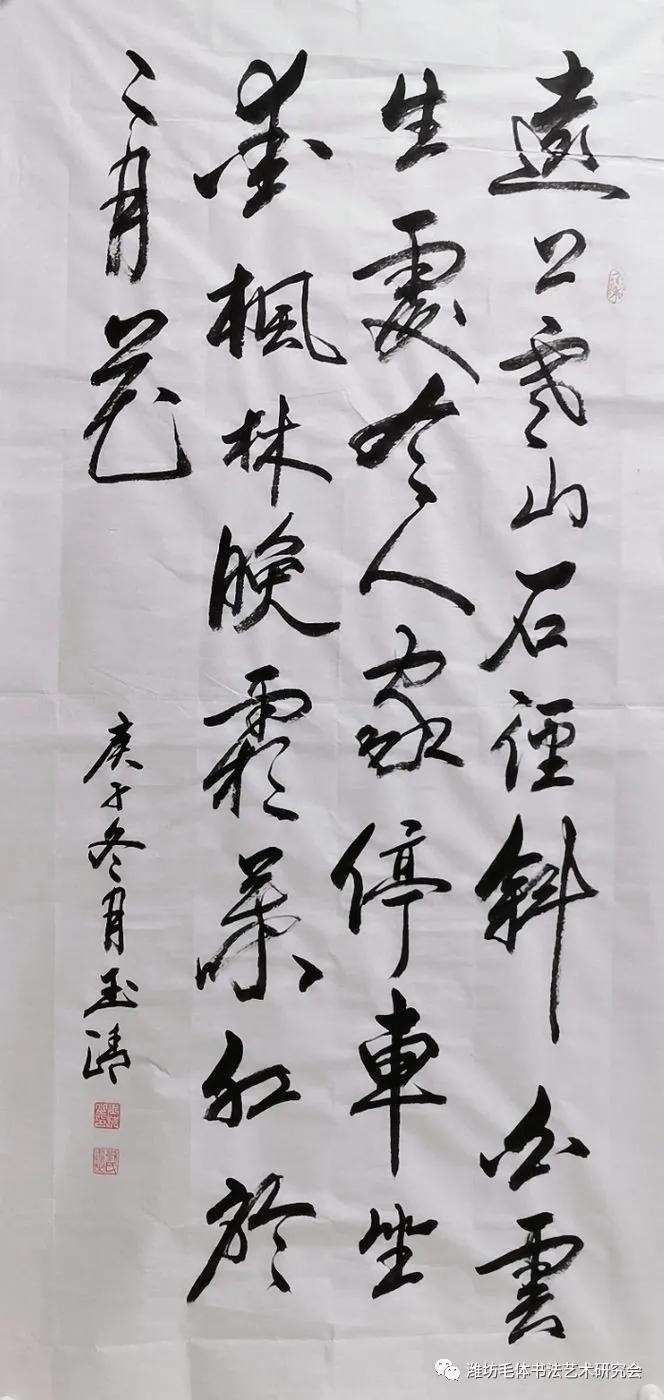 遠上寒山石径斜白雲
生處有人家停車坐
愛楓林晚霜葉紅於
二月花
庚子冬月玉涛
潍坊毛体书法艺术研究会